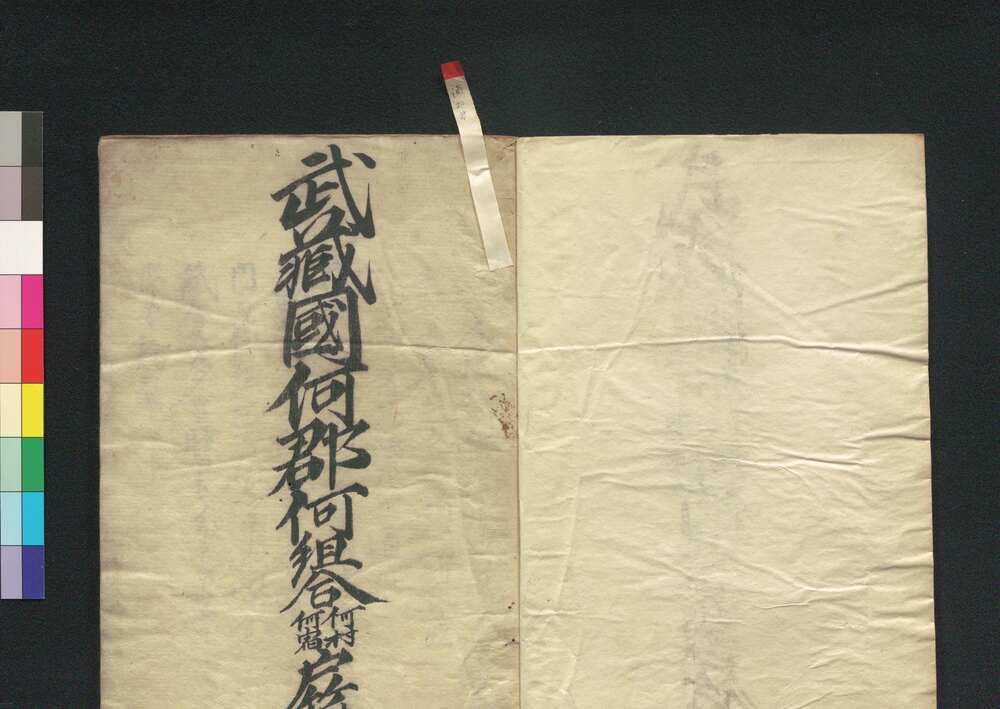 武藏國何郡何組合
何村
何宿